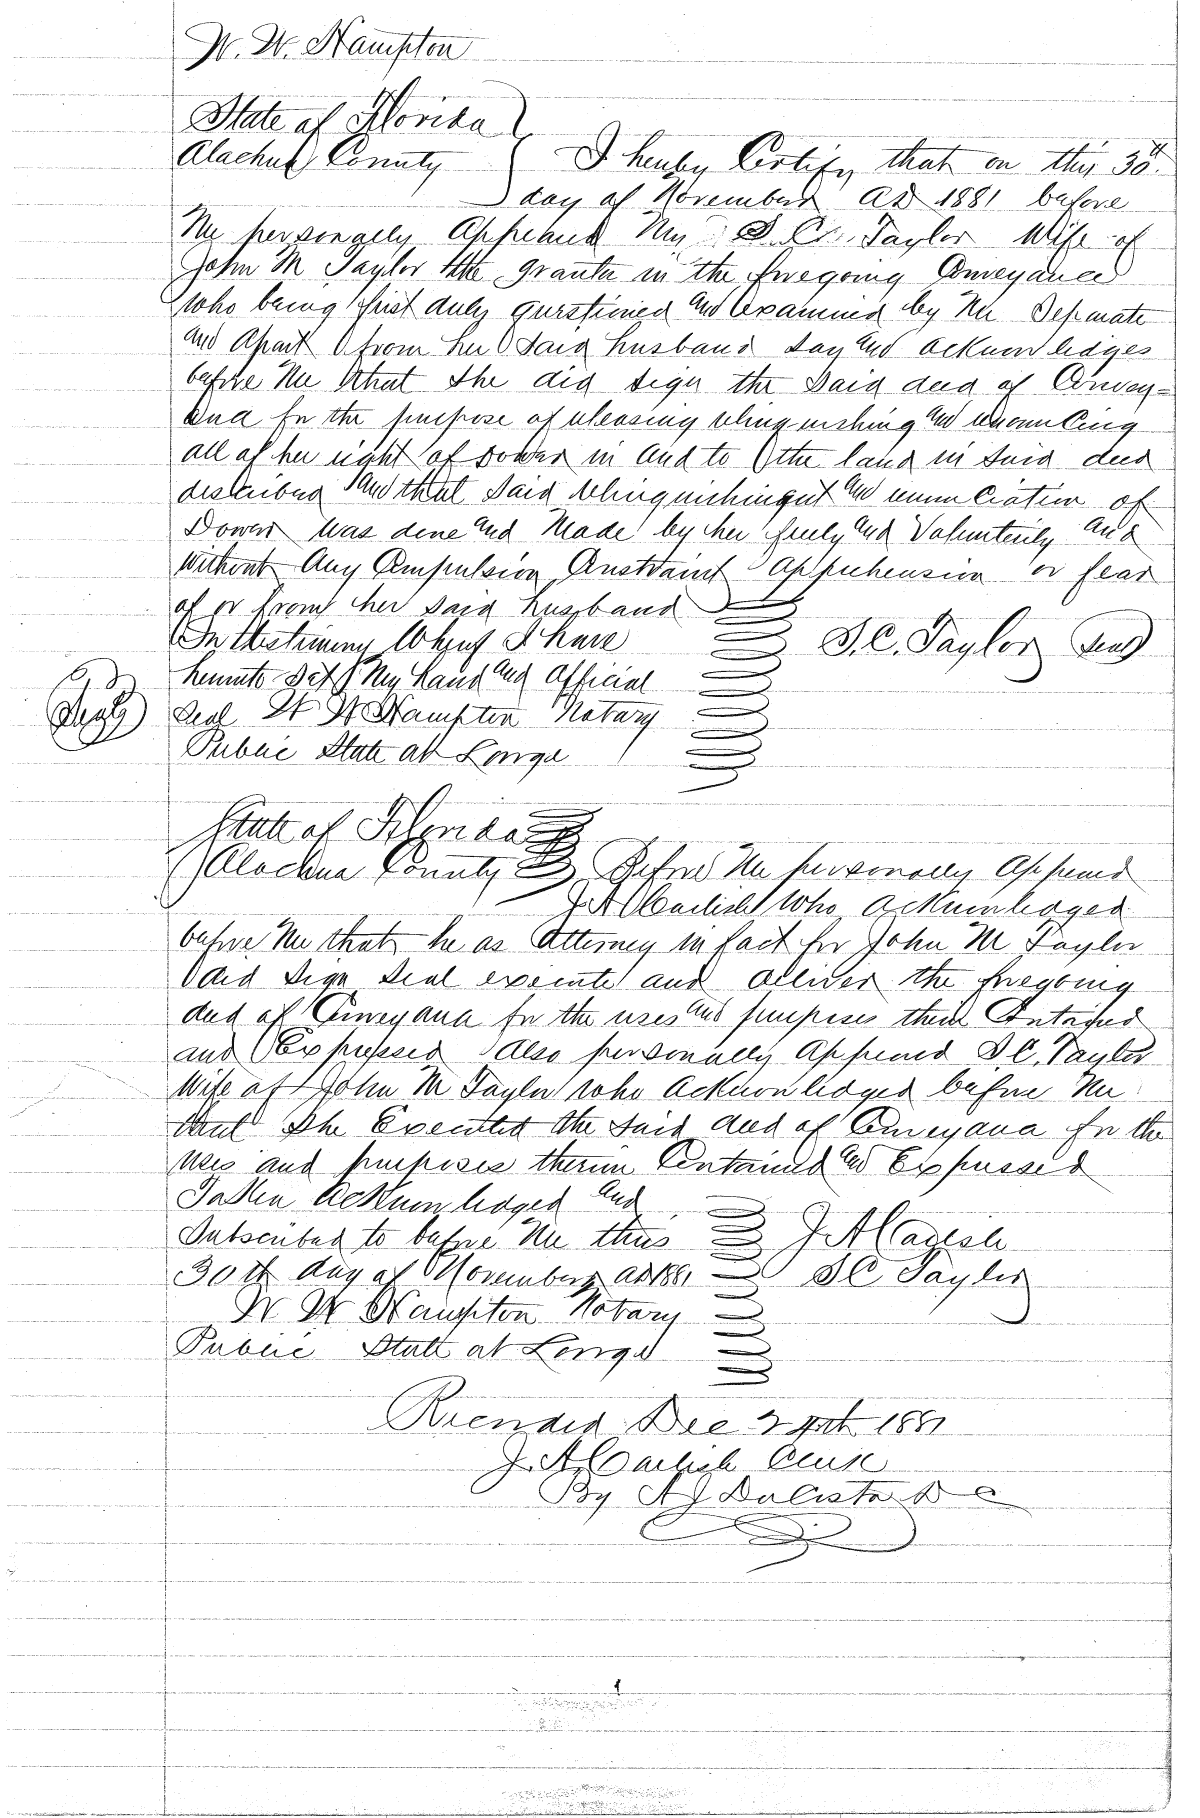 W. W. Hampton
State of Florida
Alachua County I hereby Certify that on this 30th
day of November AD 1881 before
Me personally Appeared Mrs S. C. Taylor Wife of
John M Taylor the grantor in the foregoing Conveyance
who being first duly questioned and examined by Me Separate
and Apart from her Said husband Say and acknowledges
before Me that She did sign the Said deed of Convey-
ance for the purpose of releasing relinquishing and renouncing
all of her right of Dower in and to the land in Said deed
described and that Said relinquishment and renunciation of
Dower was done and Made by her freely and Voluntarily and
Without Any Compulsion Constraint Apprehension or fear
of or from her said husband
In Testimony Whereof I have S. C. Taylor Seal
hereunto Set My hand and Official
Seal Seal W W Hampton Notary
Public State at Large
State of Florida
Alachua County Before Me personally Appeared
J A Carlisle Who acknowledged
before Me that he as Attorney in fact for John M Taylor
did Sign Seal execute and deliver the foregoing
deed of Conveyance for the uses and purposes therein Contained
and Expressed Also personally Appeared S. C. Taylor
Wife of John M Taylor who Acknowledged before Me
that She Executed the Said deed of Conveyance for the
uses and purposes therein Contained and Expressed
Taken Acknowledged and
Subscribed to before Me this J A Carlisle
30th day of November AD 1881 S C Taylor
W W Hampton Notary
Public State at Large
Recorded Dec 24th 1881
J. A. Carlisle Clerk
By A J DaCosta D C